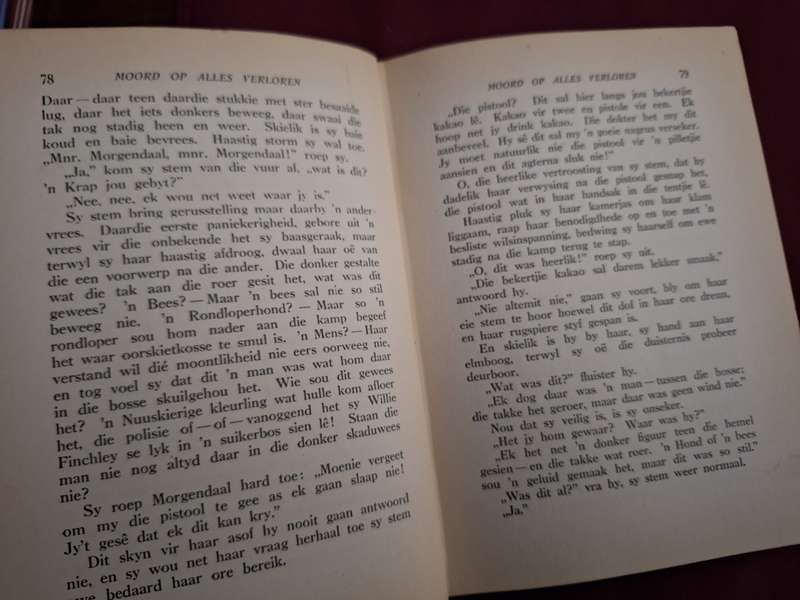 78
MOORD OP ALLES VERLOREN
Daar — daar teen daardie stukkie met ster besaaide
lug, daar het iets donkers beweeg, daar swaai die
tak nog stadig heen en weer. Skielik is sy baie
koud en baie bevrees. Haastig storm sy wal toe.
„Mnr. Morgendaal, mnr. Morgendaal!” roep sy.
„Ja,” kom sy stem van die vuur al, „wat is dit?
'n Krap jou gebyt?”
„Nee, nee, ek wou net weet waar jy is.”
Sy stem bring gerusstelling maar daarby 'n ander
vrees. Daardie eerste paniekerigheid, gebore uit 'n
vrees vir die onbekende het sy baasgeraak, maar
terwyl sy haar haastig afdroog, dwaal haar oë van
die een voorwerp na die ander. Die donker gestalte
wat die tak aan die roer gesit het, wat was dit
gewees? 'n Bees? — Maar 'n bees sal nie so stil
beweeg nie, 'n Rondloperhond? — Maar so 'n
rondloper sou hom nader aan die kamp begeef
het waar oorskietkosse te smul is. 'n Mens? — Haar
verstand wil dié moontlikheid nie eers oorweeg nie,
en tog voel sy dat dit 'n man was wat hom daar
in die bosse skuilgehou het. Wie sou dit gewees
het? 'n Nuuskierige kleurling wat hulle kom afloer
het, die polisie of — of — vanoggend het sy Willie
Finchley se lyk in 'n suikerbos sien lê! Staan die
man nie nog altyd daar in die donker skaduwees
nie?
Sy roep Morgendaal hard toe: „Moenie vergeet
om my die pistool te gee as ek gaan slaap nie!
Jy't gesê dat ek dit kan kry.”
Dit skyn vir haar asof hy nooit gaan antwoord
nie, en sy wou net haar vraag herhaal toe sy stem
bedaard haar ore bereik.
MOORD OP ALLES VERLOREN
79
„Die pistool? Dit sal hier langs jou bekertjie
kakao lê. Kakao vir twee en pistole vir een. Ek
hoop net jy drink kakao. Die dokter het my dit
aanbeveel. Hy sê dit sal my 'n goeie nagrus verseker.
Jy moet natuurlik nie die pistool vir 'n pilletjie
aansien en dit agterna sluk nie!”
O, die heerlike vertroosting van sy stem, dat hy
dadelik haar verwysing na die pistool gesnap het,
die pistool wat in haar handsak in die tentjie lê.
Haastig pluk sy haar kamerjas om haar klam
liggaam, raap haar benodigdhede op en toe met 'n
besliste wilsinspanning, bedwing sy haarself om ewe
stadig na die kamp terug te stap.
„O, dit was heerlik!” roep sy uit.
„Die bekertjie kakao sal darem lekker smaak,”
antwoord hy.
„Nie altemit nie,” gaan sy voort, bly om haar
eie stem te hoor hoewel dit dof in haar ore dreun,
en haar rugspiere styf gespan is.
En skielik is hy by haar, sy hand aan haar
elmboog, terwyl sy oë die duisternis probeer
deurboor.
„Wat was dit?” fluister hy.
„Ek dog daar was 'n man — tussen die bosse;
die takke het geroer, maar daar was geen wind nie.”
Nou dat sy veilig is, is sy onseker.
„Het jy hom gewaar? Waar was hy?”
„Ek het net 'n donker figuur teen die hemel
gesien — en die takke wat roer. 'n Hond of 'n bees
sou 'n geluid gemaak het, maar dit was so stil.”
„Was dit al?” vra hy, sy stem weer normaal.
„Ja.”